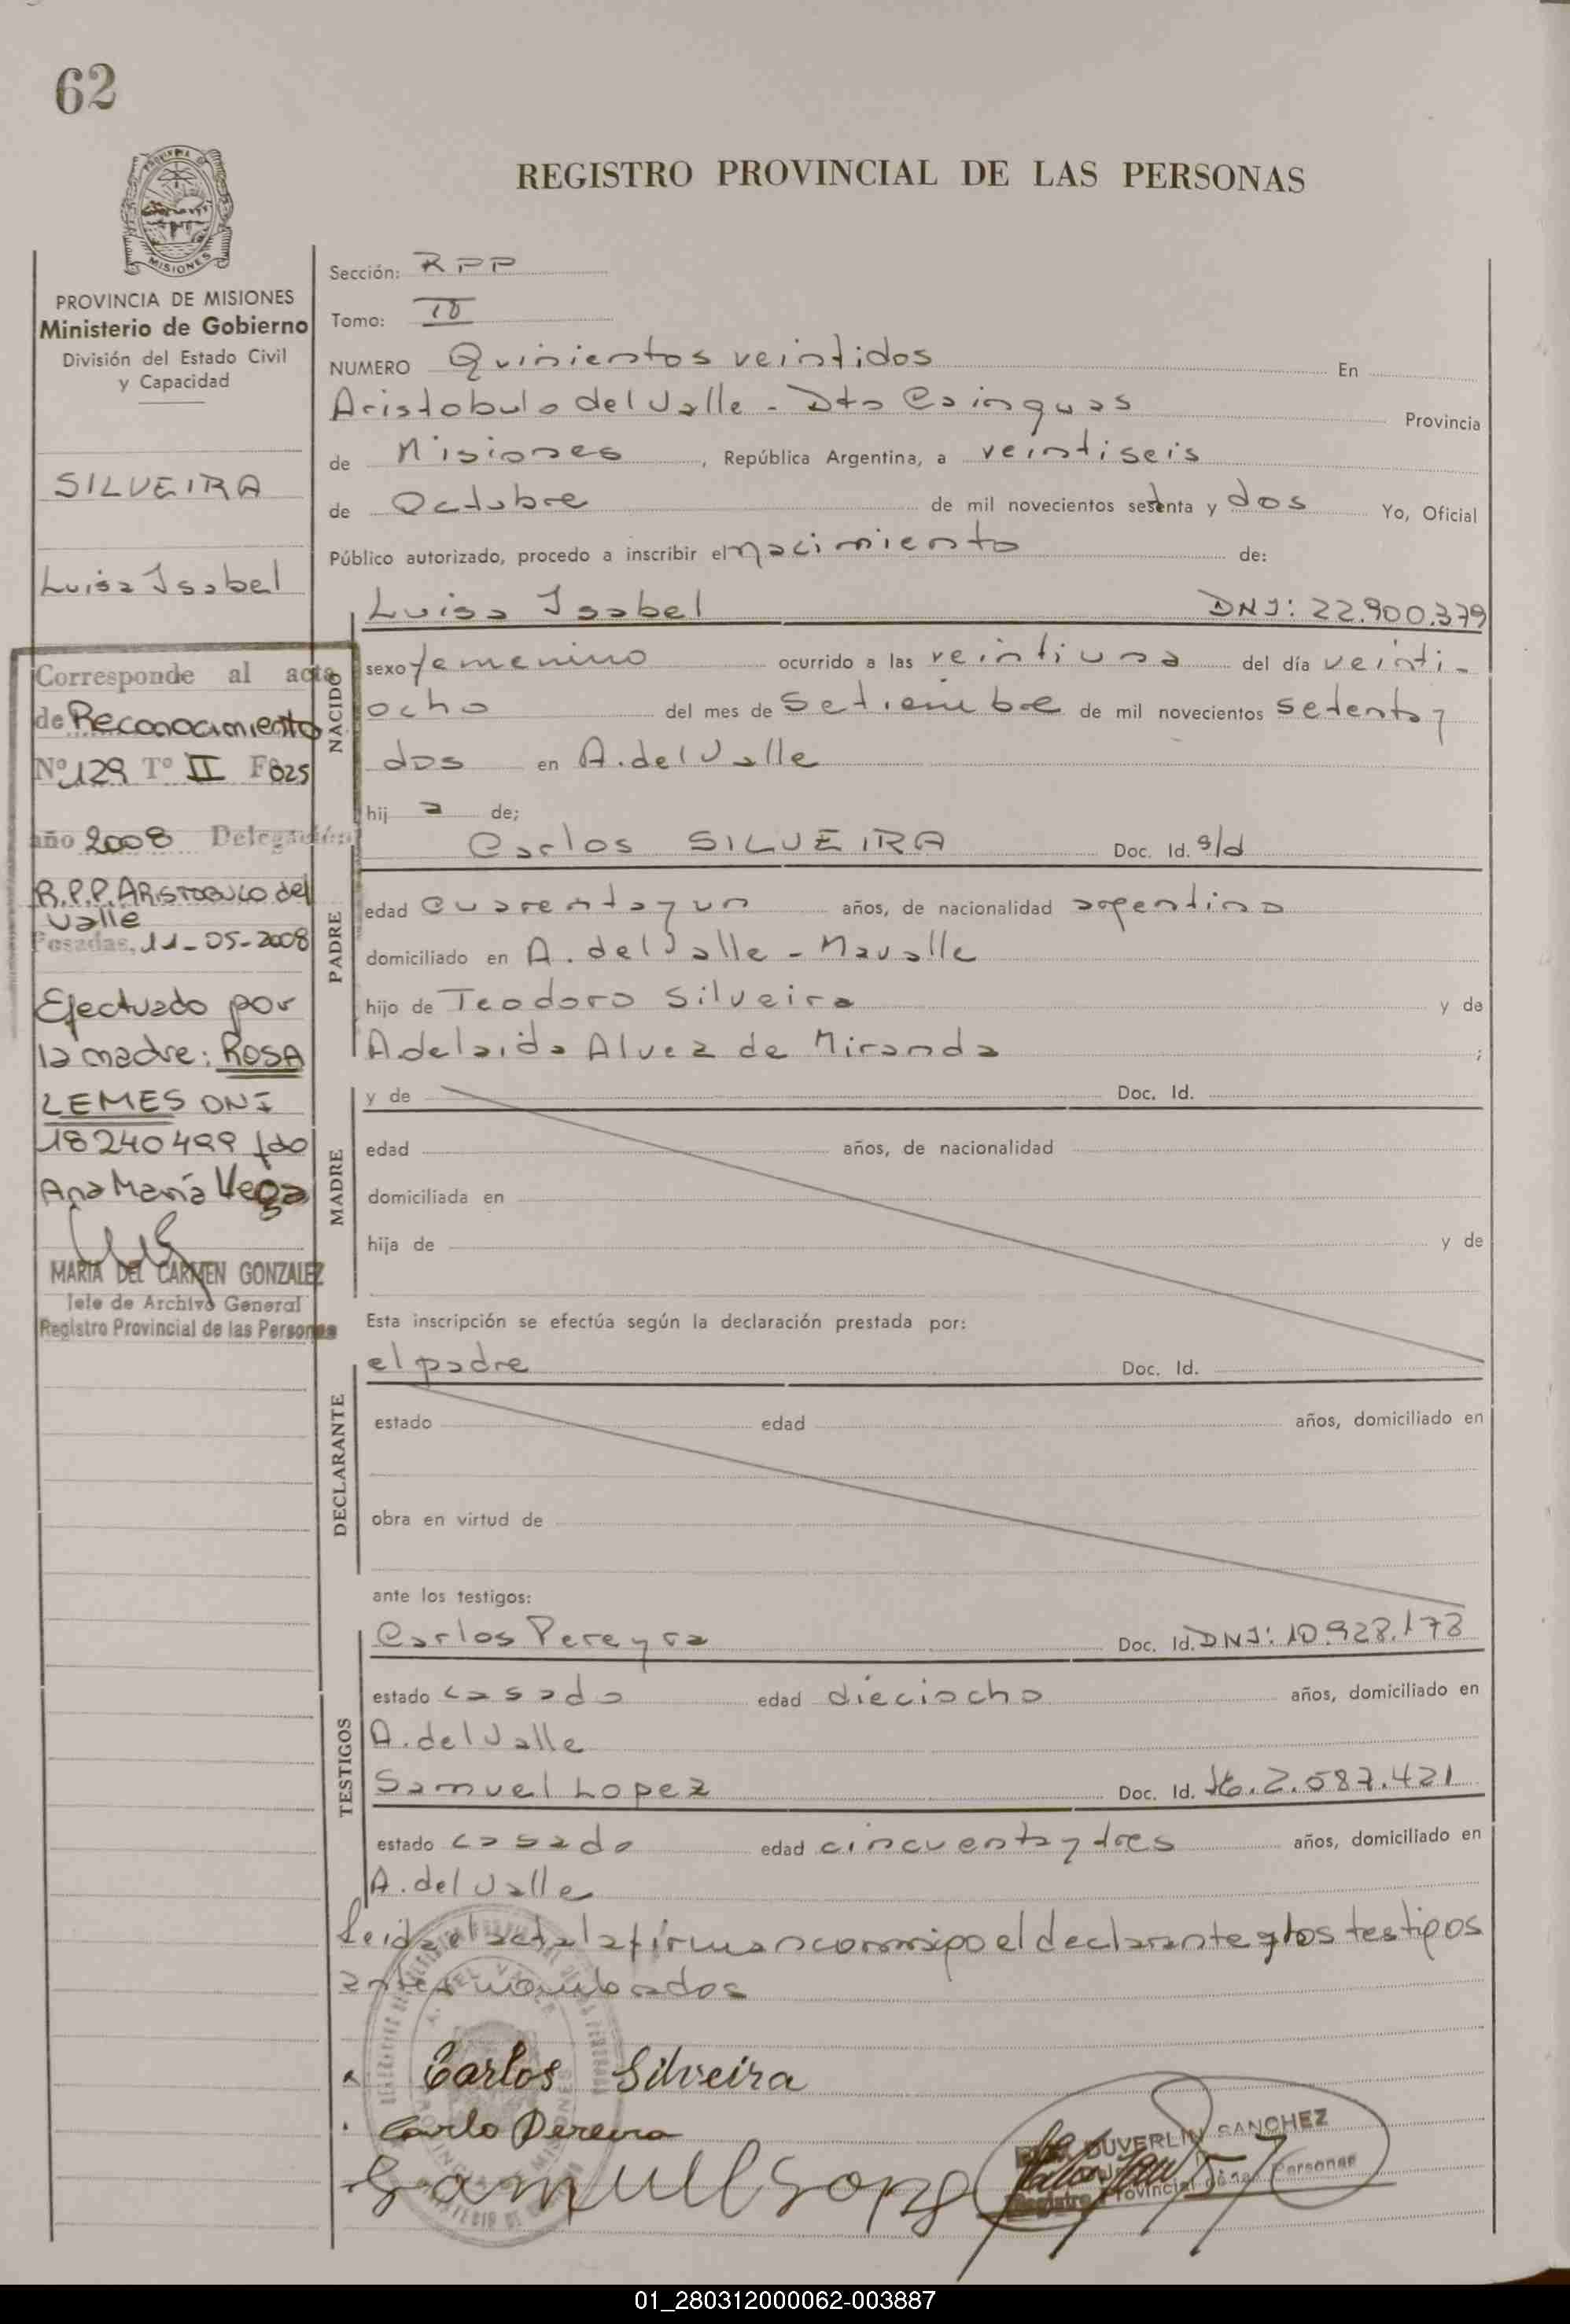 62
REGISTRO PROVINCIAL DE LAS PERSONAS
MISIONES
PROVINCIA DE MISIONES
Ministerio de Gobierno
División del Estado Civil
y Capacidad
SILVEIRA
Luisa Isabel
Corresponde al acta
de Reconocimiento
Nº 129 Tº II Fº 025
año 2008 Delegación
R.P.P. ARISTOBULO del
Valle
Posadas, 11-05-2008
Efectuado por
la madre: ROSA
LEMES DNI
18240499 fdo
Ana María Vega
MARIA DEL CARMEN GONZALEZ
Jefe de Archivo General
Registro Provincial de las Personas
Sección: RPP
Tomo:
NUMERO Quinientos veintidos En
Aristobulo del Valle - Dto Cainguas Provincia
de Misiones, República Argentina, a veintiseis
de Octubre de mil novecientos setenta y dos Yo, Oficial
Público autorizado, procedo a inscribir el nacimiento de:
NACIDO
Luisa Isabel DNI: 22.900.379
sexo femenino ocurrido a las veintiuna del día veinti-
ocho del mes de Setiembre de mil novecientos setenta y
dos en A. del Valle
hij a de;
PADRE
Carlos SILVEIRA Doc. Id. s/d
edad cuarenta y un años, de nacionalidad argentina
domiciliado en A. del Valle - Mavalle
hijo de Teodoro Silveira y de
Adelaida Alvez de Miranda ;
MADRE
y de Doc. Id.
edad años, de nacionalidad
domiciliada en
hija de y de
Esta inscripción se efectúa según la declaración prestada por:
DECLARANTE
el padre Doc. Id.
estado edad años, domiciliado en
obra en virtud de
ante los testigos:
TESTIGOS
Carlos Pereyra Doc. Id. DNI: 10.928.173
estado casado edad dieciocho años, domiciliado en
A. del Valle
Samuel Lopez Doc. Id. 2.587.421
estado casado edad cincuenta y tres años, domiciliado en
A. del Valle
Leida el acta la firman conmigo el declarante y los testigos
antes nombrados
Carlos Silveira
Carlo Pereira
Samuel Lopez
DUVERLIN SANCHEZ
Registro Provincial de las Personas
01_280312000062-003887